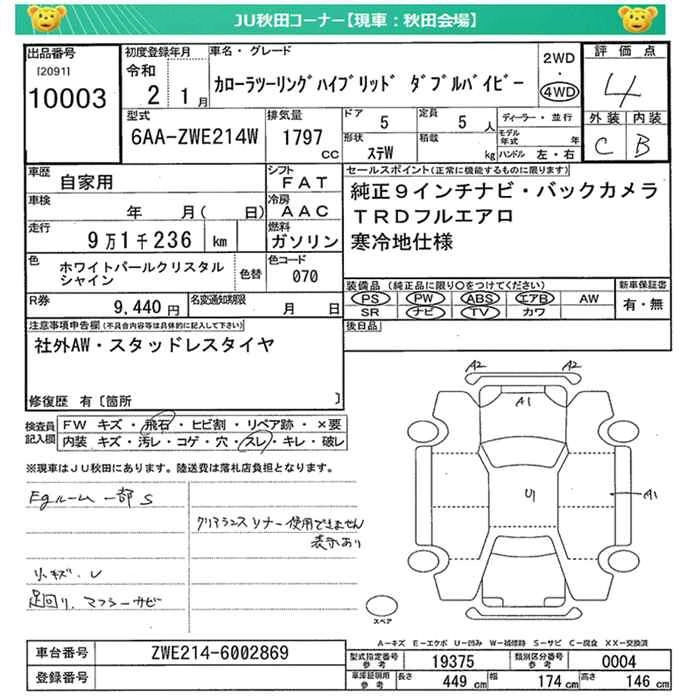 JU秋田コーナー【現車：秋田会場】
出品番号
(20911
10003
初度登録年月
令和
2 1月
車名・グレード
カローラツーリングハイブリッド ダブルバイビー
2WD
・
4WD
評価点
4
外装 内装
C B
型式
6AA-ZWE214W
排気量
1797
cc
ドア 5
定員 5 人
形状 ステW
積載 kg
ディーラー・並行
モデル年式 年
ハンドル 左・右
車歴 自家用
シフト FAT
車検 年 月( 日)
冷房 AAC
走行 9万1千236 km
燃料 ガソリン
色 ホワイトパールクリスタルシャイン
色替
色コード 070
R券 9,440 円
名変通知期限 月 日
セールスポイント(正常に機能するものに限ります)
純正9インチナビ・バックカメラ
TRDフルエアロ
寒冷地仕様
装備品 (純正品に限り○をつけてください)
PS PW ABS エアB AW
SR ナビ TV カワ
新車保証書
有・無
後日品
注意事項申告欄(不具合内容等は具体的に記入して下さい)
社外AW・スタッドレスタイヤ
修復歴 有〔箇所 〕
検査員記入欄
FW キズ・飛石・ヒビ割・リペア跡・×要
内装 キズ・汚レ・コゲ・穴・スレ・キレ・破レ
※現車はJU秋田にあります。陸送費は落札店負担となります。
Egルーム一部S
クリアランスソナー使用できません
表示あり
リ、キズ.U
足回り、マフラーサビ
A2 A2
A1
U1
A1
スペア
A－キズ E－エクボ U－凹み W－補修跡 S－サビ C－腐食 XX－交換済
車台番号 ZWE214-6002869
登録番号
型式指定番号 参考 19375
類別区分番号 参考 0004
車庫証明用 参考
長さ 449 cm
幅 174 cm
高さ 146 cm